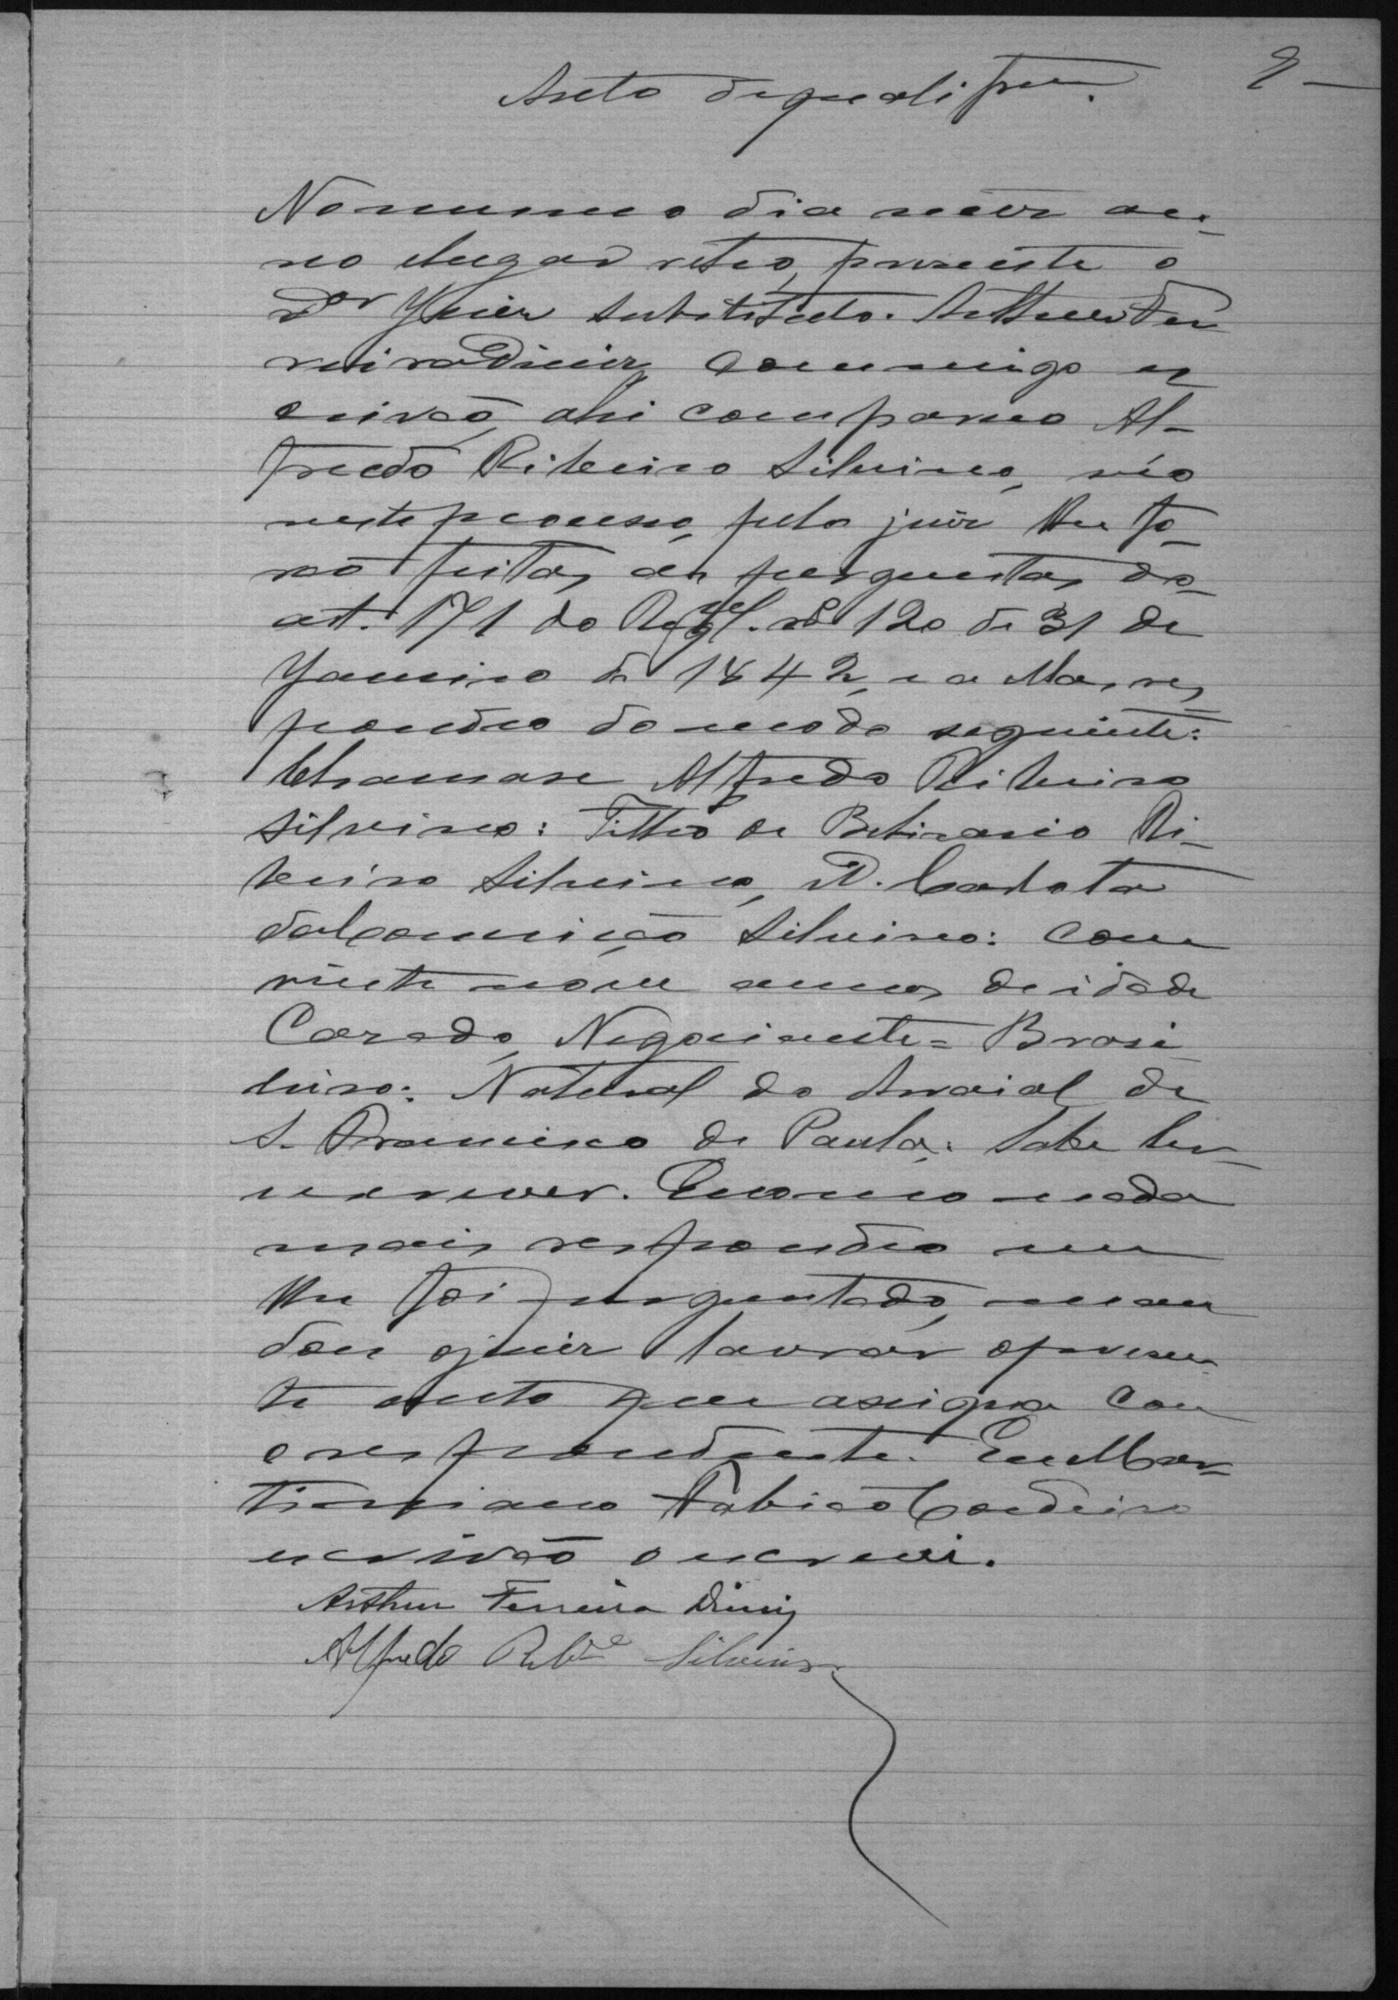 Auto de qualifcam.
No mesmo dia mez an-
no e lugar retro, presente o
Dor Juiz substituto. Arthur Fer
reira Diniz, commigo es
crivão, ahi compareo Al-
fredo Ribeiro Silvino, réo
neste processo, pelo juiz lhe fo-
rão feitas as perguntas do
art. 171 do Regul. nº 120 de 31 de
Janeiro de 1842, e a ellas, res
pondeo do modo seguinte:
Chamase Alfredo Ribeiro
Silvino: Filho de Ri-
beiro Silvino, D. Carlota
da Silvino: com
vinte nove annos de idade
Cazado, Negociante = Brasi
leiro: Natural do Arraial de
S. Francisco de Paula: Sabe ler
escrever. E como nada
mais respondeo nem
lhe foi perguntado, man
dou o juiz lavrar o presen
te auto que assigna com
o respondente. Eu Mar-
Fabião Cordeiro
escrivão o escrevi.
Arthur Ferreira Diniz
Alfredo Ribro Silvino